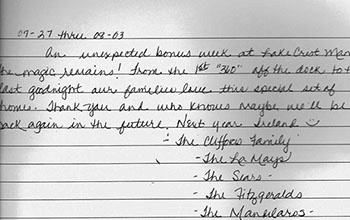 07-27 thru 08-03
An unexpected bonus week at Lake Crest Man
he magic remains! From the 1st "360" off the dock to th
last goodnight our families love this special set of
home. Thank you and who knows maybe we'll be
back again in the future. Next year Ireland ☺
- The Clifford Family
- The La Mays
- The Sears -
- The Fitzgeralds
- The Mandularos -